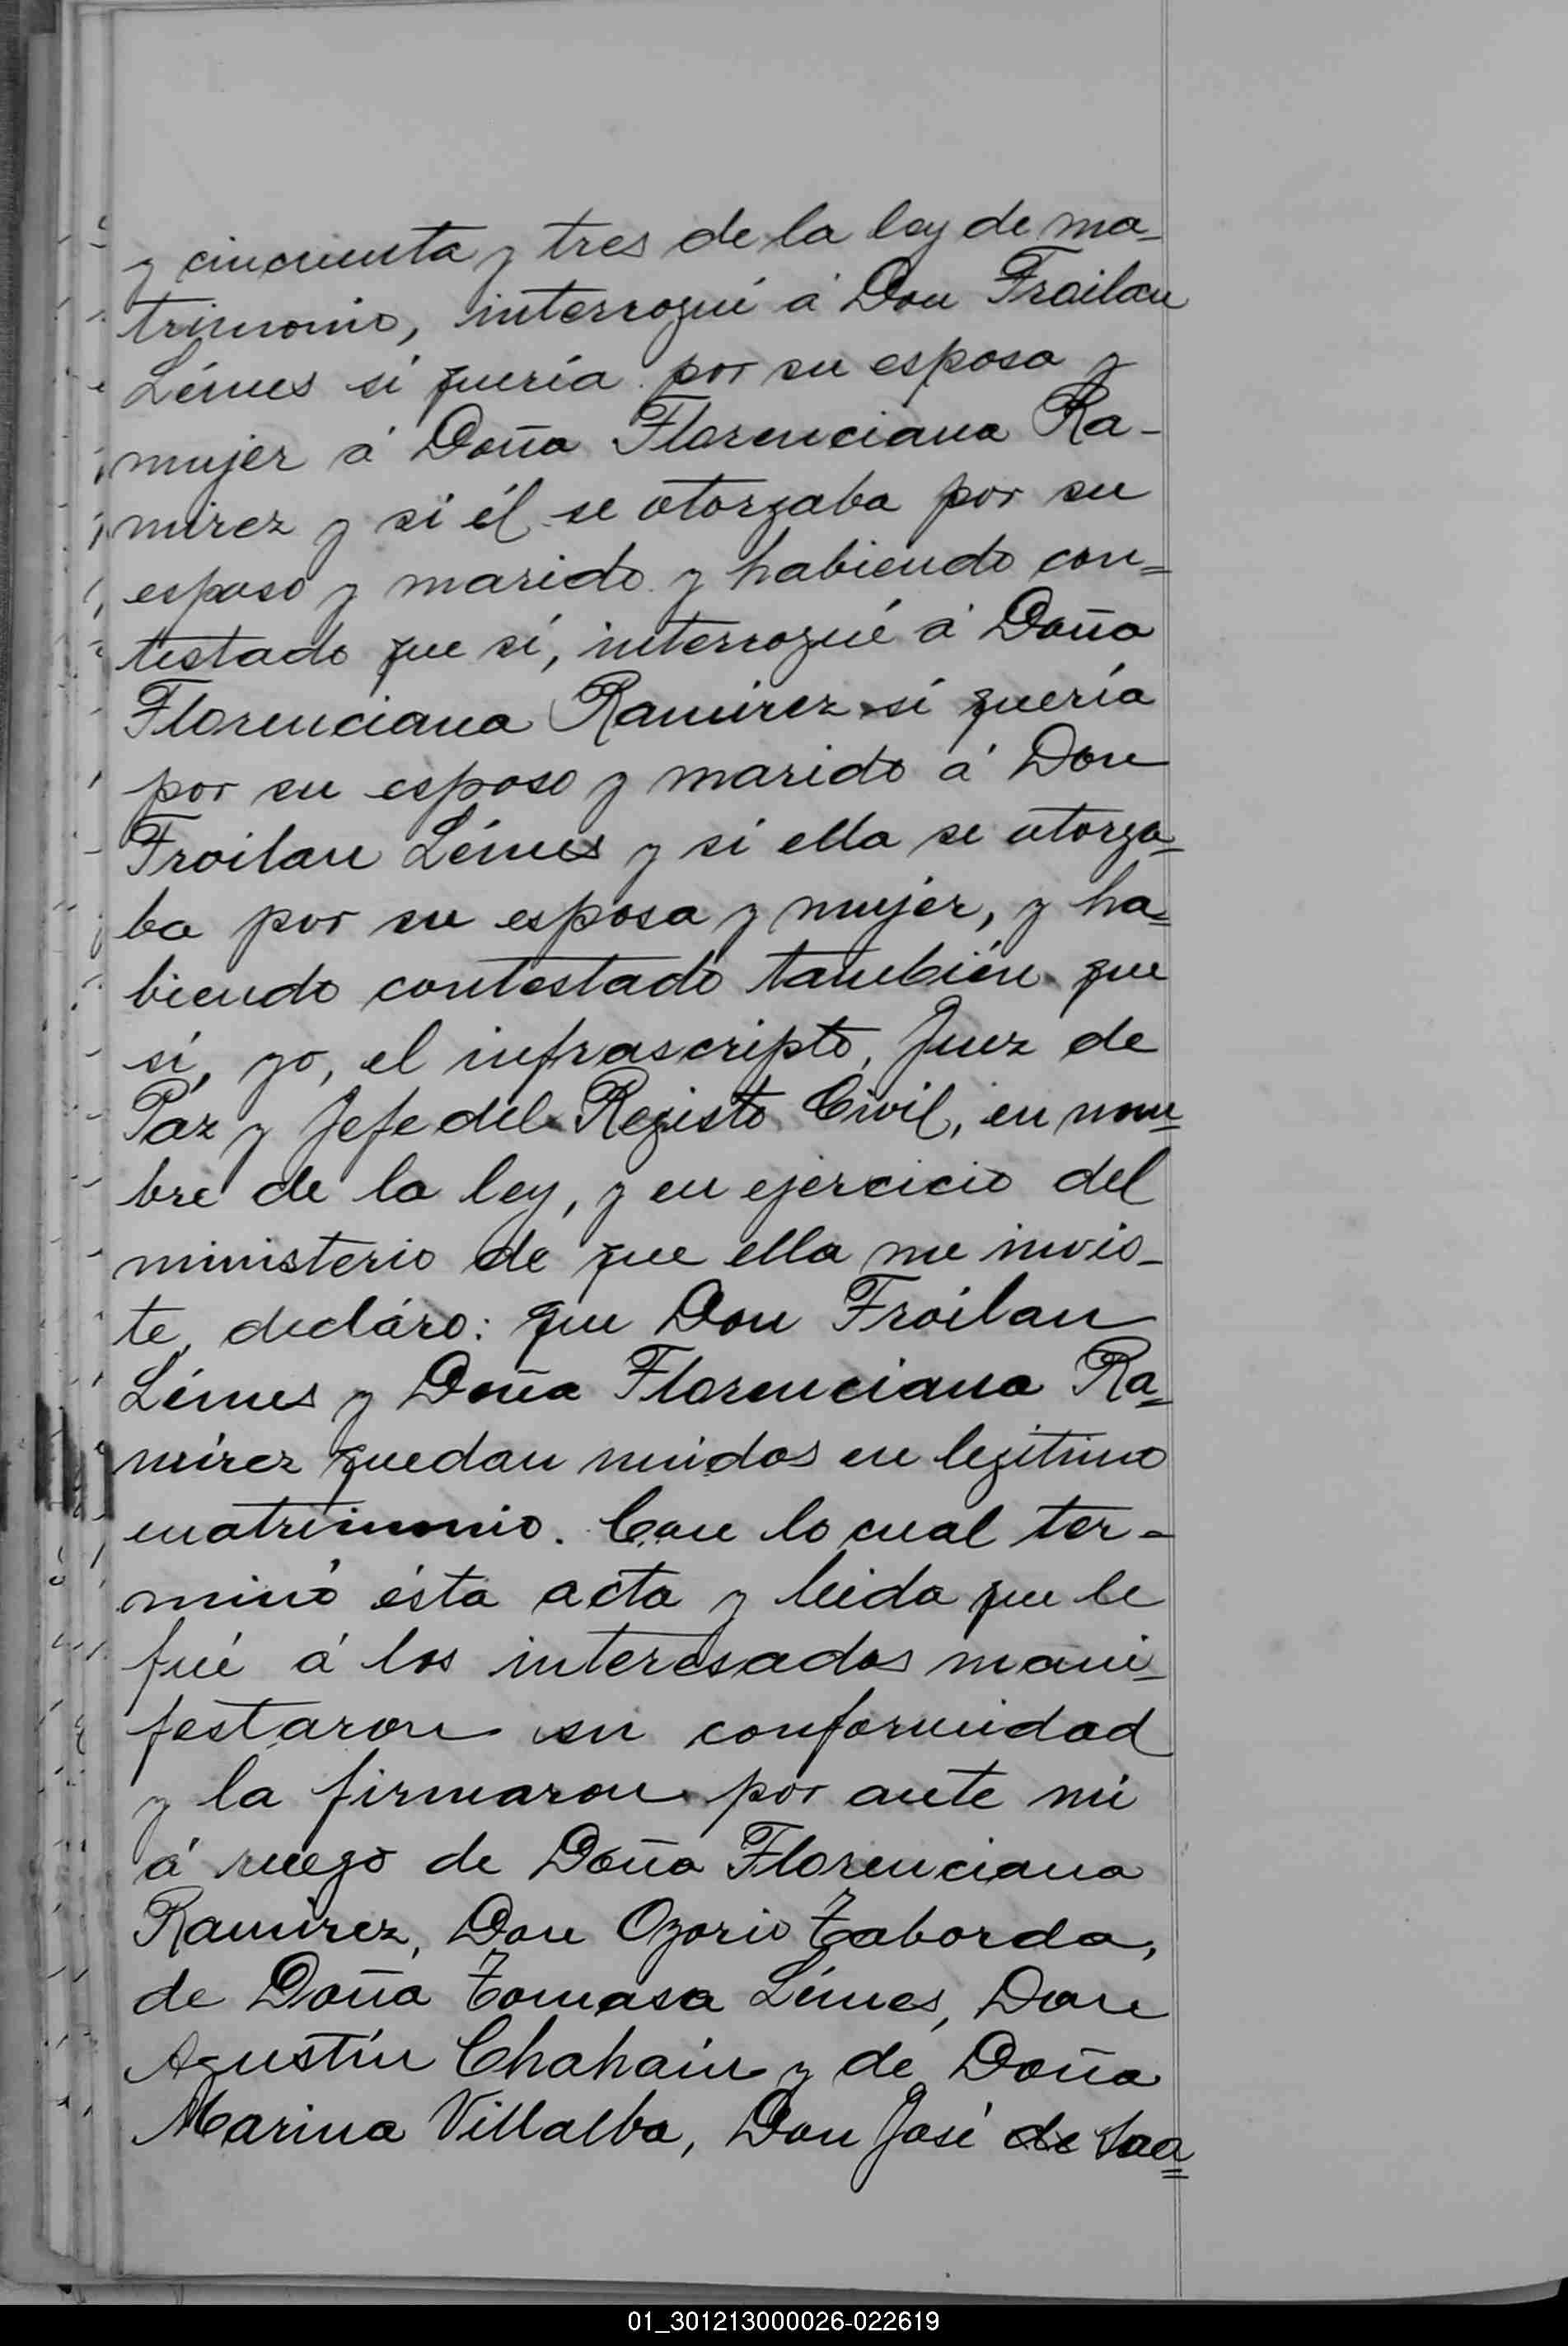 y cincuenta y tres de la ley de ma-
trimonio, interrogué á Don Froilan
Lémes si quería por su esposa y
mujer á Doña Florenciana Ra-
mirez y si él se otorgaba por su
esposo y marido y habiendo con=
testado que sí, interrogué á Doña
Florenciana Ramirez si quería
por su esposo y marido á Don
Froilan Lémes y si ella se otorga=
ba por su esposa y mujer, y ha=
biendo contestado también que
sí, yo, el infrascripto, Juez de
Paz y Jefe del Registo Civil, en nom=
bre de la ley, y en ejercicio del
ministerio de que ella me invis-
te, decláro: que Don Froilan
Lémes y Doña Florenciana Ra=
mirez quedan unidos en legitimo
matrimonio. Con lo cual ter-
minó ésta acta y leida que le
fué á los interesados mani-
festaron su conformidad
y la firmaron por ante mi
á ruego de Doña Florenciana
Ramirez, Don Ozorio Taborda,
de Doña Tomasa Lémes, Don
Agustín Chahain y de Doña
Marina Villalba, Don José de Saa=
01_301213000026-022619